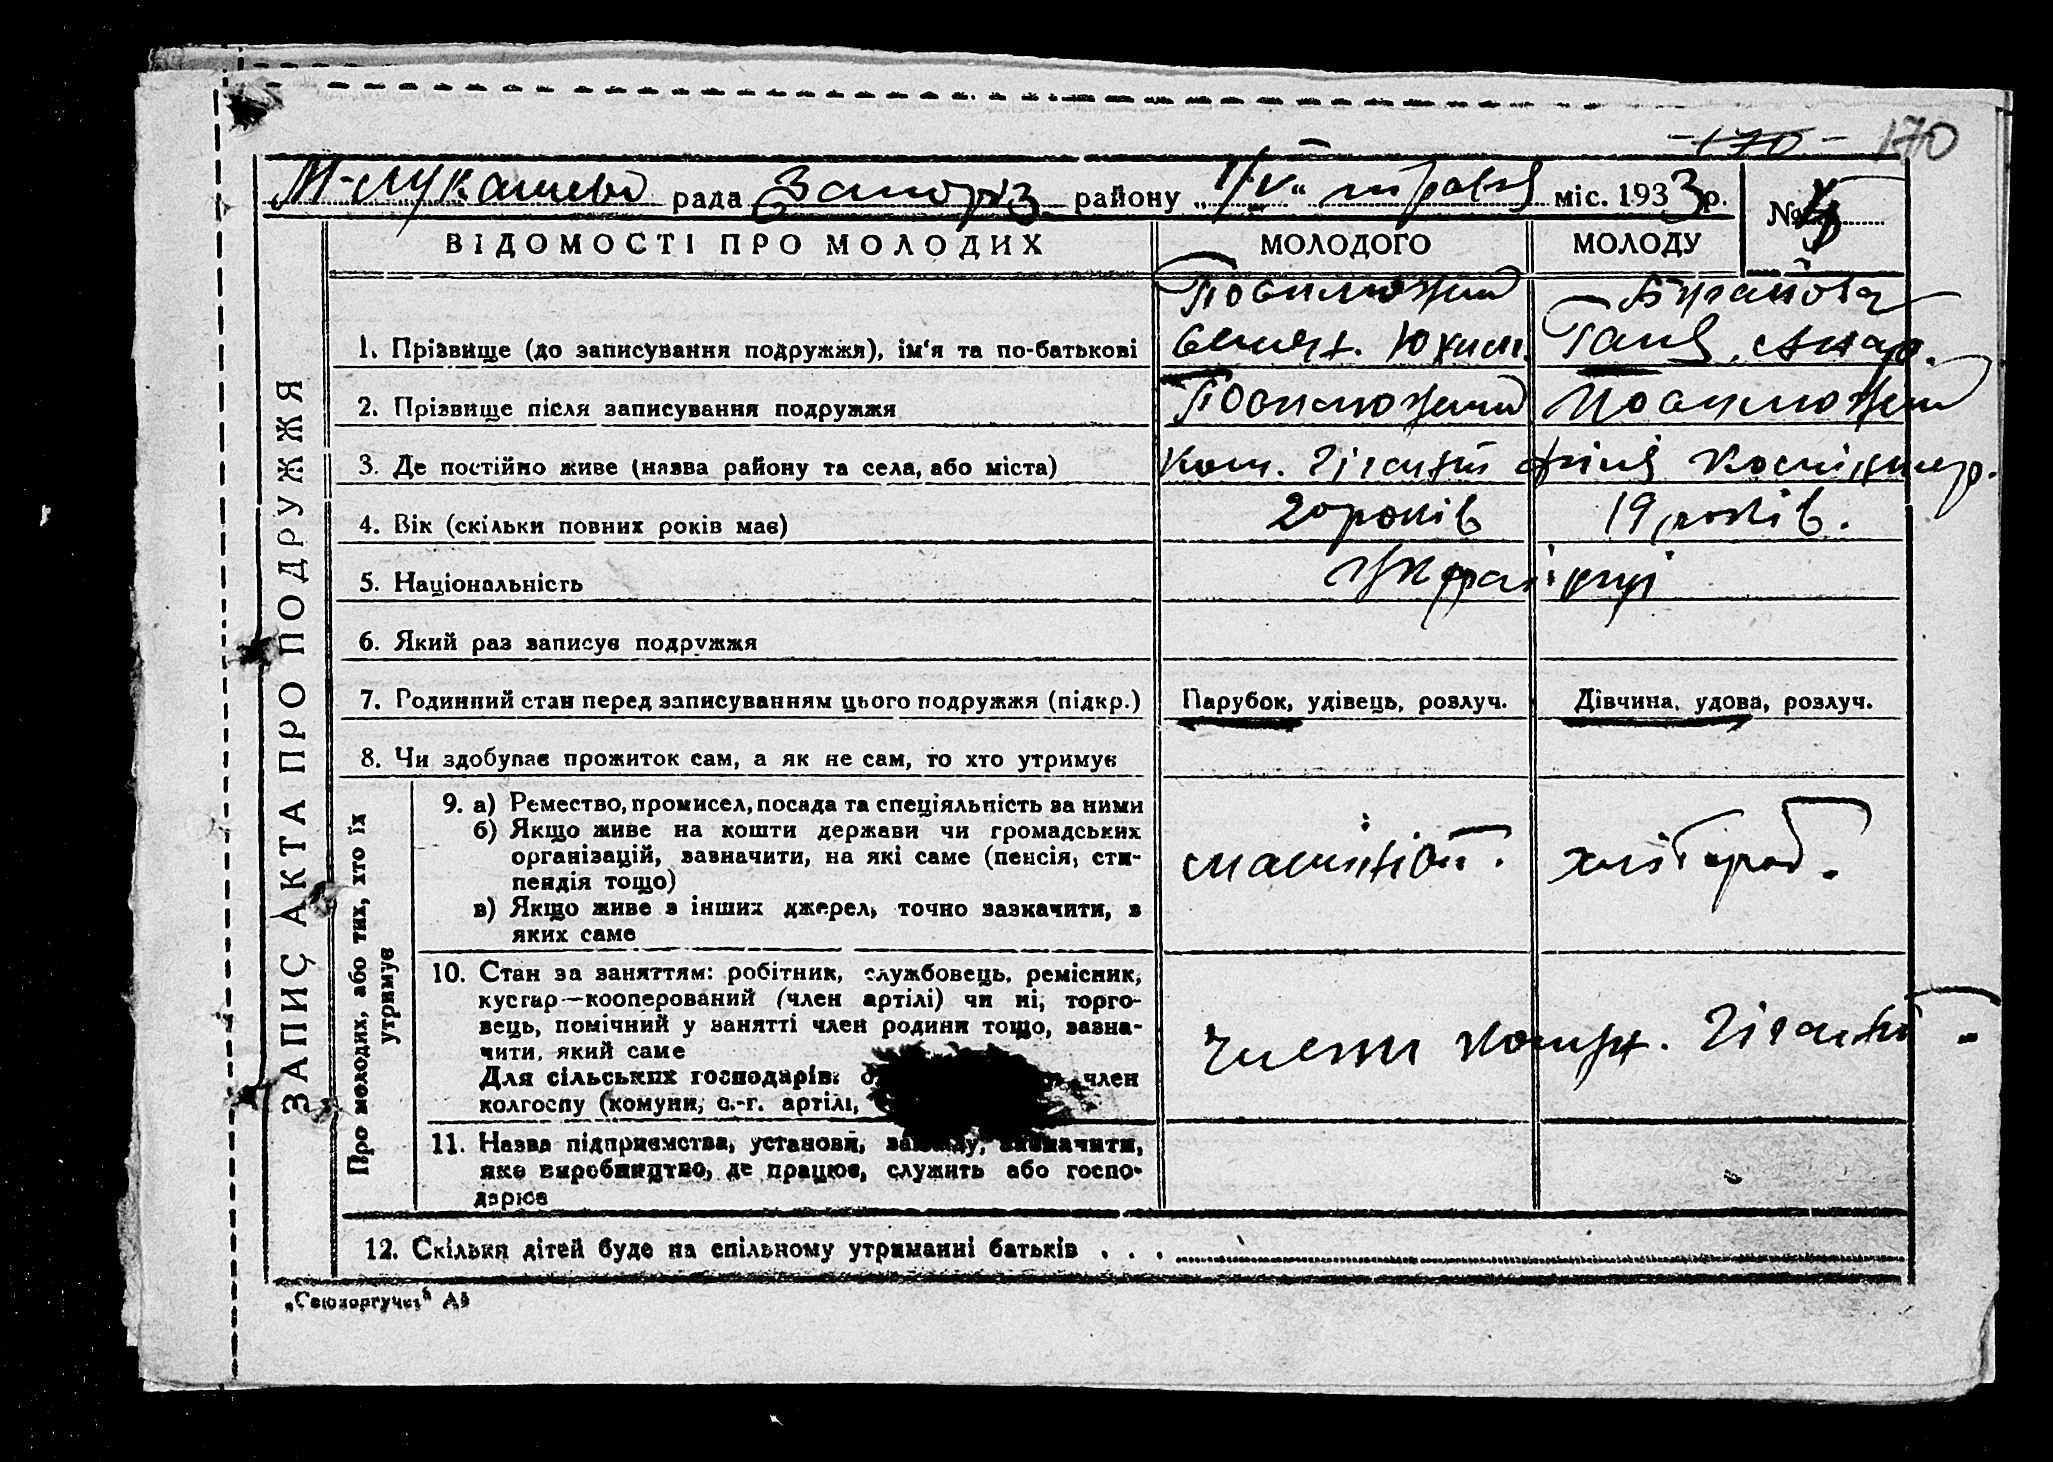 170 170
М-Лукашево рада Запоріз району „1/V“ травня міс. 1933 р. № 4
ВІДОМОСТІ ПРО МОЛОДИХ МОЛОДОГО МОЛОДУ
1. Прізвище (до записування подружжя), ім'я та по-батькові Юхим. Ганя
2. Прізвище після записування подружжя
3. Де постійно живе (назва району та села, або міста) Ком. Гігант філія
4. Вік (скільки повних років має) 20 років 19 років.
5. Національність Українці
6. Який раз записує подружжя
7. Родинний стан перед записуванням цього подружжя (підкр.) Парубок, удівець, розлуч. Дівчина, удова, розлуч.
8. Чи здобуває прожиток сам, а як не сам, то хто утримує
9. а) Ремество, промисел, посада та спеціяльність за ними
б) Якщо живе на кошти держави чи громадських
організацій, зазначити, на які саме (пенсія, сти-
пендія тощо)
в) Якщо живе з інших джерел, точно зазначити, з
яких саме
хлібороб.
10. Стан за заняттям: робітник, службовець, ремісник,
кустар—кооперований (член артілі) чи ні, торго-
вець, помічний у занятті член родини тощо, зазна-
чити, який саме
Для сільських господарів: член
колгоспу (комуни, с.-г. артілі,
члени комун. Гігант
11. Назва підприємства, установи, закладу, зазначити,
яке виробництво, де працює, служить або госпо-
дарює
12. Скільки дітей буде на спільному утриманні батьків . . .
ЗАПИС АКТА ПРО ПОДРУЖЖЯ
Про молодих, або тих, хто їх
утримує
„Союзоргучет“ А5